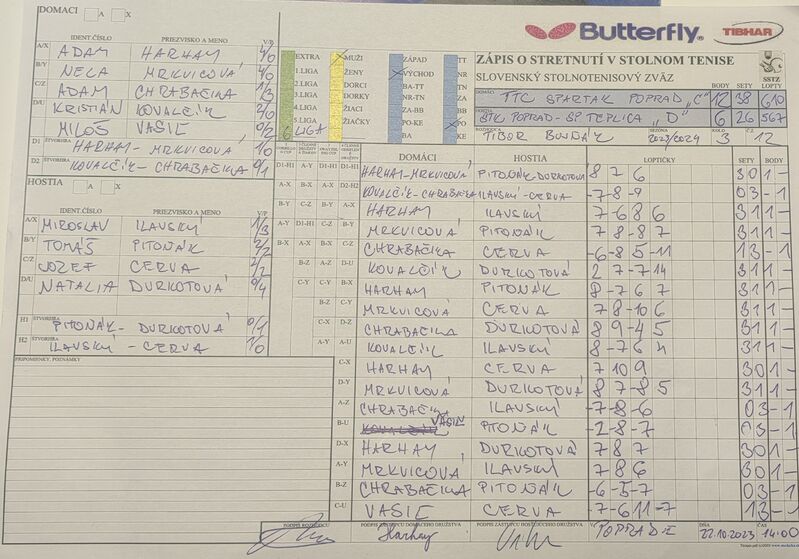 Butterfly
TIBHAR
ZÁPIS O STRETNUTÍ V STOLNOM TENISE
SLOVENSKÝ STOLNOTENISOVÝ ZVÄZ
SSTZ
BODY SETY LOPTY
DOMÁCI TTC SPARTAK POPRAD „C" 12 38 610
HOSTIA STK POPRAD-SP. TEPLICA „D" 6 26 567
ROZHODCA TIBOR SEZÓNA 2023/2024 KOLO 3 Č.Z. 12
EXTRA MUŽI ZÁPAD TT
1.LIGA ŽENY VÝCHOD NR
2.LIGA DORCI BA-TT TN
3.LIGA DORKY NR-TN ZA
4.LIGA ŽIACI ZA-BB BB
5.LIGA ŽIAČKY PO-KE PO
6 LIGA BA KE
DOMÁCI A X
IDENT.ČÍSLO PRIEZVISKO A MENO V/P
A/X ADAM HARHAY 4/0
B/Y NELA MRKVICOVÁ 4/0
C/Z ADAM CHRABAČKA 1/3
D/U KRISTIÁN KOVALČÍK 2/0
MILOŠ VASIĽ 0/2
D1 ŠTVORHRA HARHAY-MRKVICOVÁ 1/0
D2 ŠTVORHRA KOVALČÍK-CHRABAČKA 0/1
HOSTIA A X
IDENT.ČÍSLO PRIEZVISKO A MENO V/P
A/X MIROSLAV ILAVSKÝ 1/3
B/Y TOMÁŠ PITOŇÁK 2/2
C/Z JOZEF CERVA 2/2
D/U NATÁLIA DURKOTOVÁ 0/4
H1 ŠTVORHRA PITOŇÁK-DURKOTOVÁ 0/1
H2 ŠTVORHRA ILAVSKÝ-CERVA 1/0
PRIPOMIENKY, POZNÁMKY
DOMÁCI HOSTIA LOPTIČKY SETY BODY
D1-H1 HARHAY-MRKVICOVÁ PITOŇÁK-DURKOTOVÁ 8 7 6 3 0 1 -
D2-H2 KOVALČÍK-CHRABAČKA ILAVSKÝ-CERVA -7 -8 -9 0 3 - 1
HARHAY ILAVSKÝ -7 6 8 6 3 1 1 -
MRKVICOVÁ PITOŇÁK 7 8 -8 7 3 1 1 -
CHRABAČKA CERVA -6 -8 5 -11 1 3 - 1
D-U KOVALČÍK DURKOTOVÁ 2 7 -7 14 3 1 1 -
HARHAY PITOŇÁK 8 -7 6 7 3 1 1 -
MRKVICOVÁ CERVA 7 8 -10 6 3 1 1 -
D-Z CHRABAČKA DURKOTOVÁ 8 9 -4 5 3 1 1 -
A-U KOVALČÍK ILAVSKÝ 8 -7 6 4 3 1 1 -
C-X HARHAY CERVA 7 10 9 3 0 1 -
D-Y MRKVICOVÁ DURKOTOVÁ 8 7 -8 5 3 1 1 -
A-Z CHRABAČKA ILAVSKÝ -7 -8 -6 0 3 - 1
B-U VASIĽ PITOŇÁK -2 -8 -7 0 3 - 1
D-X HARHAY DURKOTOVÁ 7 8 7 3 0 1 -
A-Y MRKVICOVÁ ILAVSKÝ 7 8 6 3 0 1 -
B-Z CHRABAČKA PITOŇÁK -6 -5 -7 0 3 - 1
C-U VASIĽ CERVA -7 -6 11 -7 1 3 - 1
PODPIS ROZHODCU PODPIS ZÁSTUPCU DOMÁCEHO DRUŽSTVA PODPIS ZÁSTUPCU HOSŤUJÚCEHO DRUŽSTVA V DŇA ČAS
Harhay POPRADE 22.10.2023 14:00